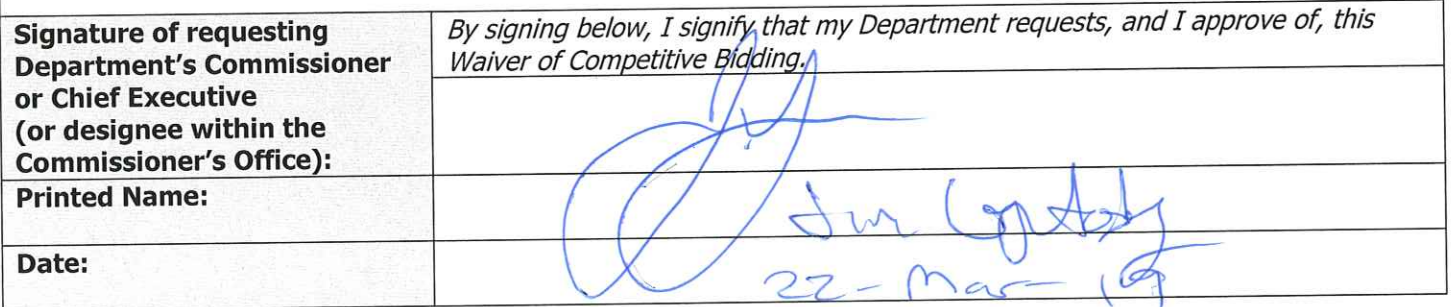 Signature of requesting
Department's Commissioner
or Chief Executive
(or designee within the
Commissioner's Office):
By signing below, I signify that my Department requests, and I approve of, this
Waiver of Competitive Bidding.
Printed Name:
Date:
22-Mar-19